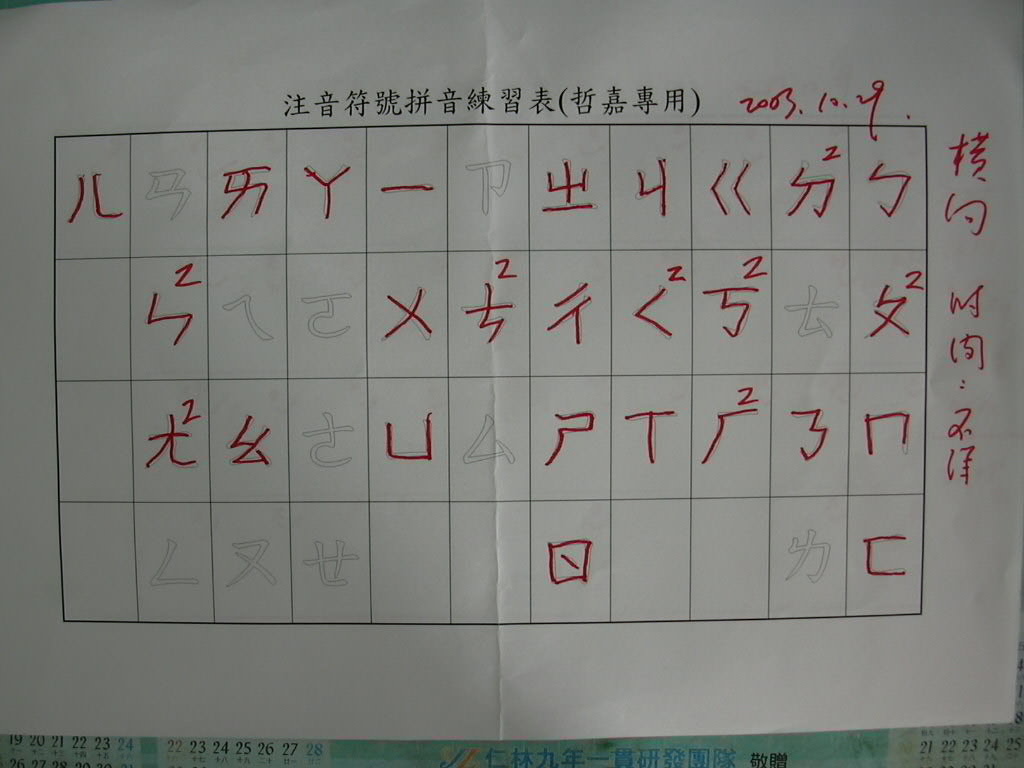 注音符號拼音練習表(哲嘉專用)
2003.10.29.
ㄦ ㄢ ㄞ ㄚ ㄧ ㄗ ㄓ ㄐ ㄍ ㄉ2 ㄅ
ㄣ2 ㄟ ㄛ ㄨ ㄘ2 ㄔ ㄑ2 ㄎ2 ㄊ ㄆ2
ㄤ2 ㄠ ㄜ ㄩ ㄙ ㄕ ㄒ ㄏ2 ㄋ ㄇ
ㄥ ㄡ ㄝ ㄖ ㄌ ㄈ
橫向
时間:不詳
19 20 21 22 23 24
22 23 24 25 26 27 28
仁林九年一貫研發團隊 敬贈
21 22 23 24 25
26 27 28 29 30